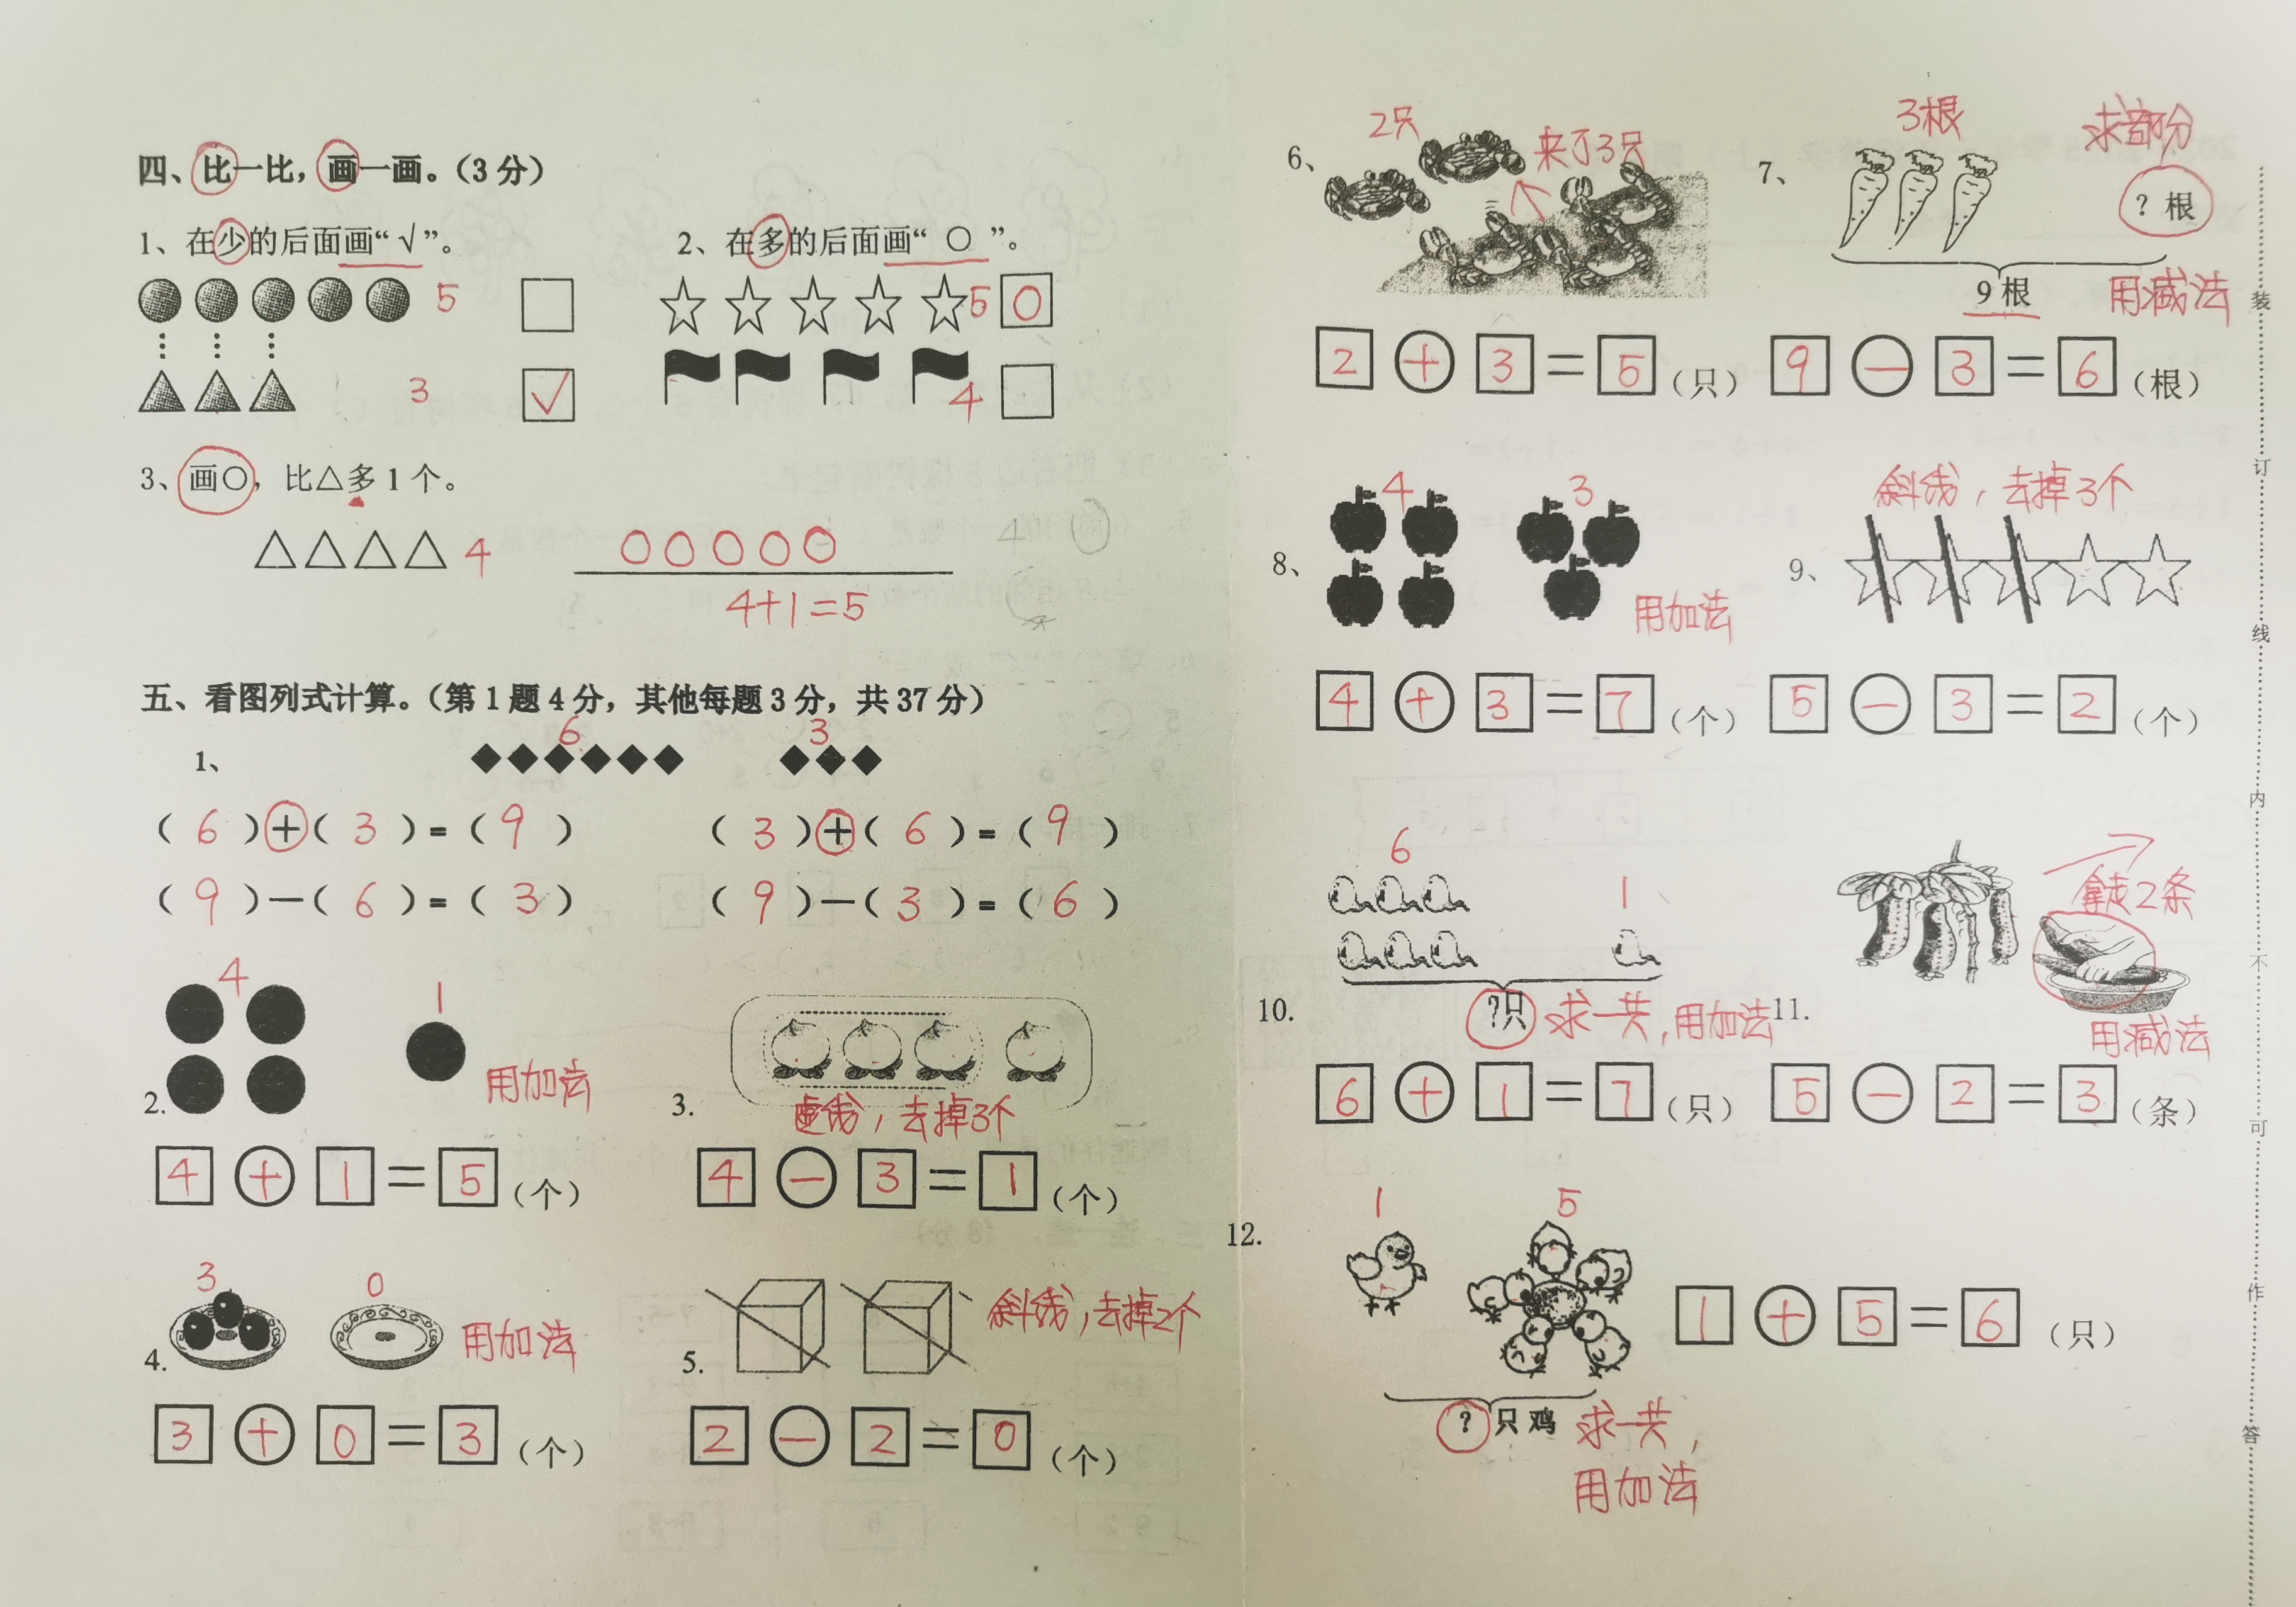 四、比一比，画一画。（3 分）
1、在少的后面画“√”。
5
3
√
2、在多的后面画“ ○ ”。
5 ○
4
3、画○，比△多 1 个。
△△△△ 4 ○○○○○
4+1=5
五、看图列式计算。（第 1 题 4 分，其他每题 3 分，共 37 分）
1、 6 3
（ 6 ）+（ 3 ）=（ 9 ） （ 3 ）+（ 6 ）=（ 9 ）
（ 9 ）—（ 6 ）=（ 3 ） （ 9 ）—（ 3 ）=（ 6 ）
2. 4 1 用加法
4 + 1 = 5（个）
3. 虚线，去掉3个
4 － 3 = 1（个）
4. 3 0 用加法
3 + 0 = 3（个）
5. 斜线，去掉2个
2 － 2 = 0（个）
6、 2只 来了3只
2 + 3 = 5（只）
7、 3根 求部分
？根
9 根 用减法
9 － 3 = 6（根）
8、 4 3 用加法
4 + 3 = 7（个）
9、 斜线，去掉3个
5 － 3 = 2（个）
10. 6 1
？只 求一共，用加法
6 + 1 = 7（只）
11. 拿走2条
用减法
5 － 2 = 3（条）
12. 1 5
1 + 5 = 6（只）
？只 鸡 求一共，
用加法
装
订
线
内
不
可
作
答